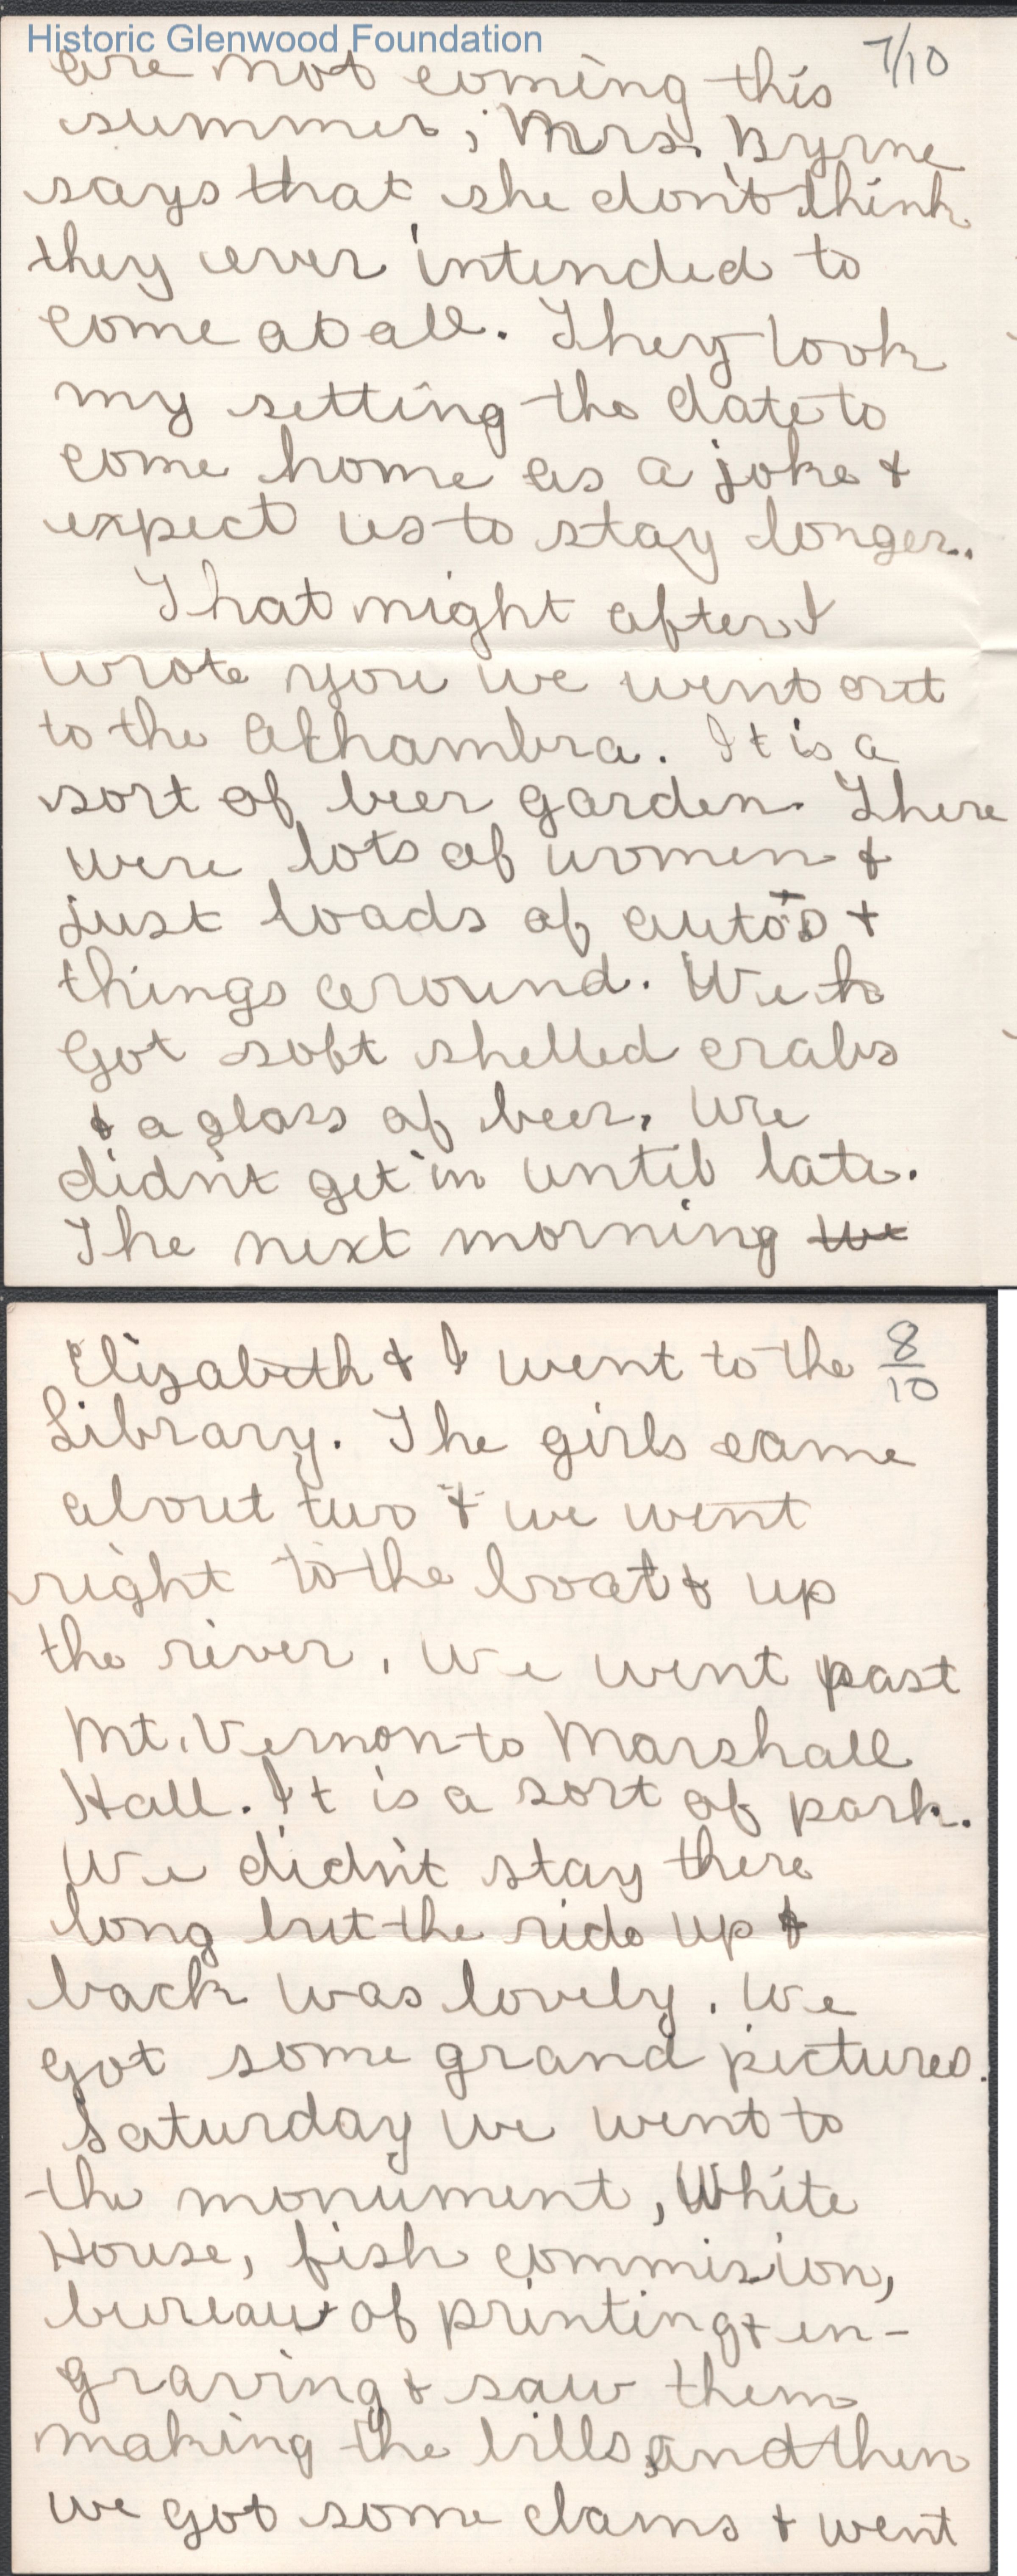 Historic Glenwood Foundation
7/10
are not coming this
summer, Mrs. Byrne
says that she don't think
they ever intended to
come at all. They look
my setting the date to
come home as a joke &
expect us to stay longer.
That night after I
wrote you we went out
to the Alhambra. It is a
sort of beer garden. There
were lots of women &
just loads of auto's &
things around. We h
got soft shelled crabs
& a glass of beer. We
didn't get in until late.
The next morning we
Elizabeth & I went to the
8/10
Library. The girls came
about two & we went
right to the boat & up
the river. We went past
Mt. Vernon to Marshall
Hall. It is a sort of park.
We didn't stay there
long but the ride up &
back was lovely. We
got some grand pictures.
Saturday we went to
the monument, White
House, fish commision,
bureau of printing & en-
graving & saw them
making the bills, and then
we got some clams & went